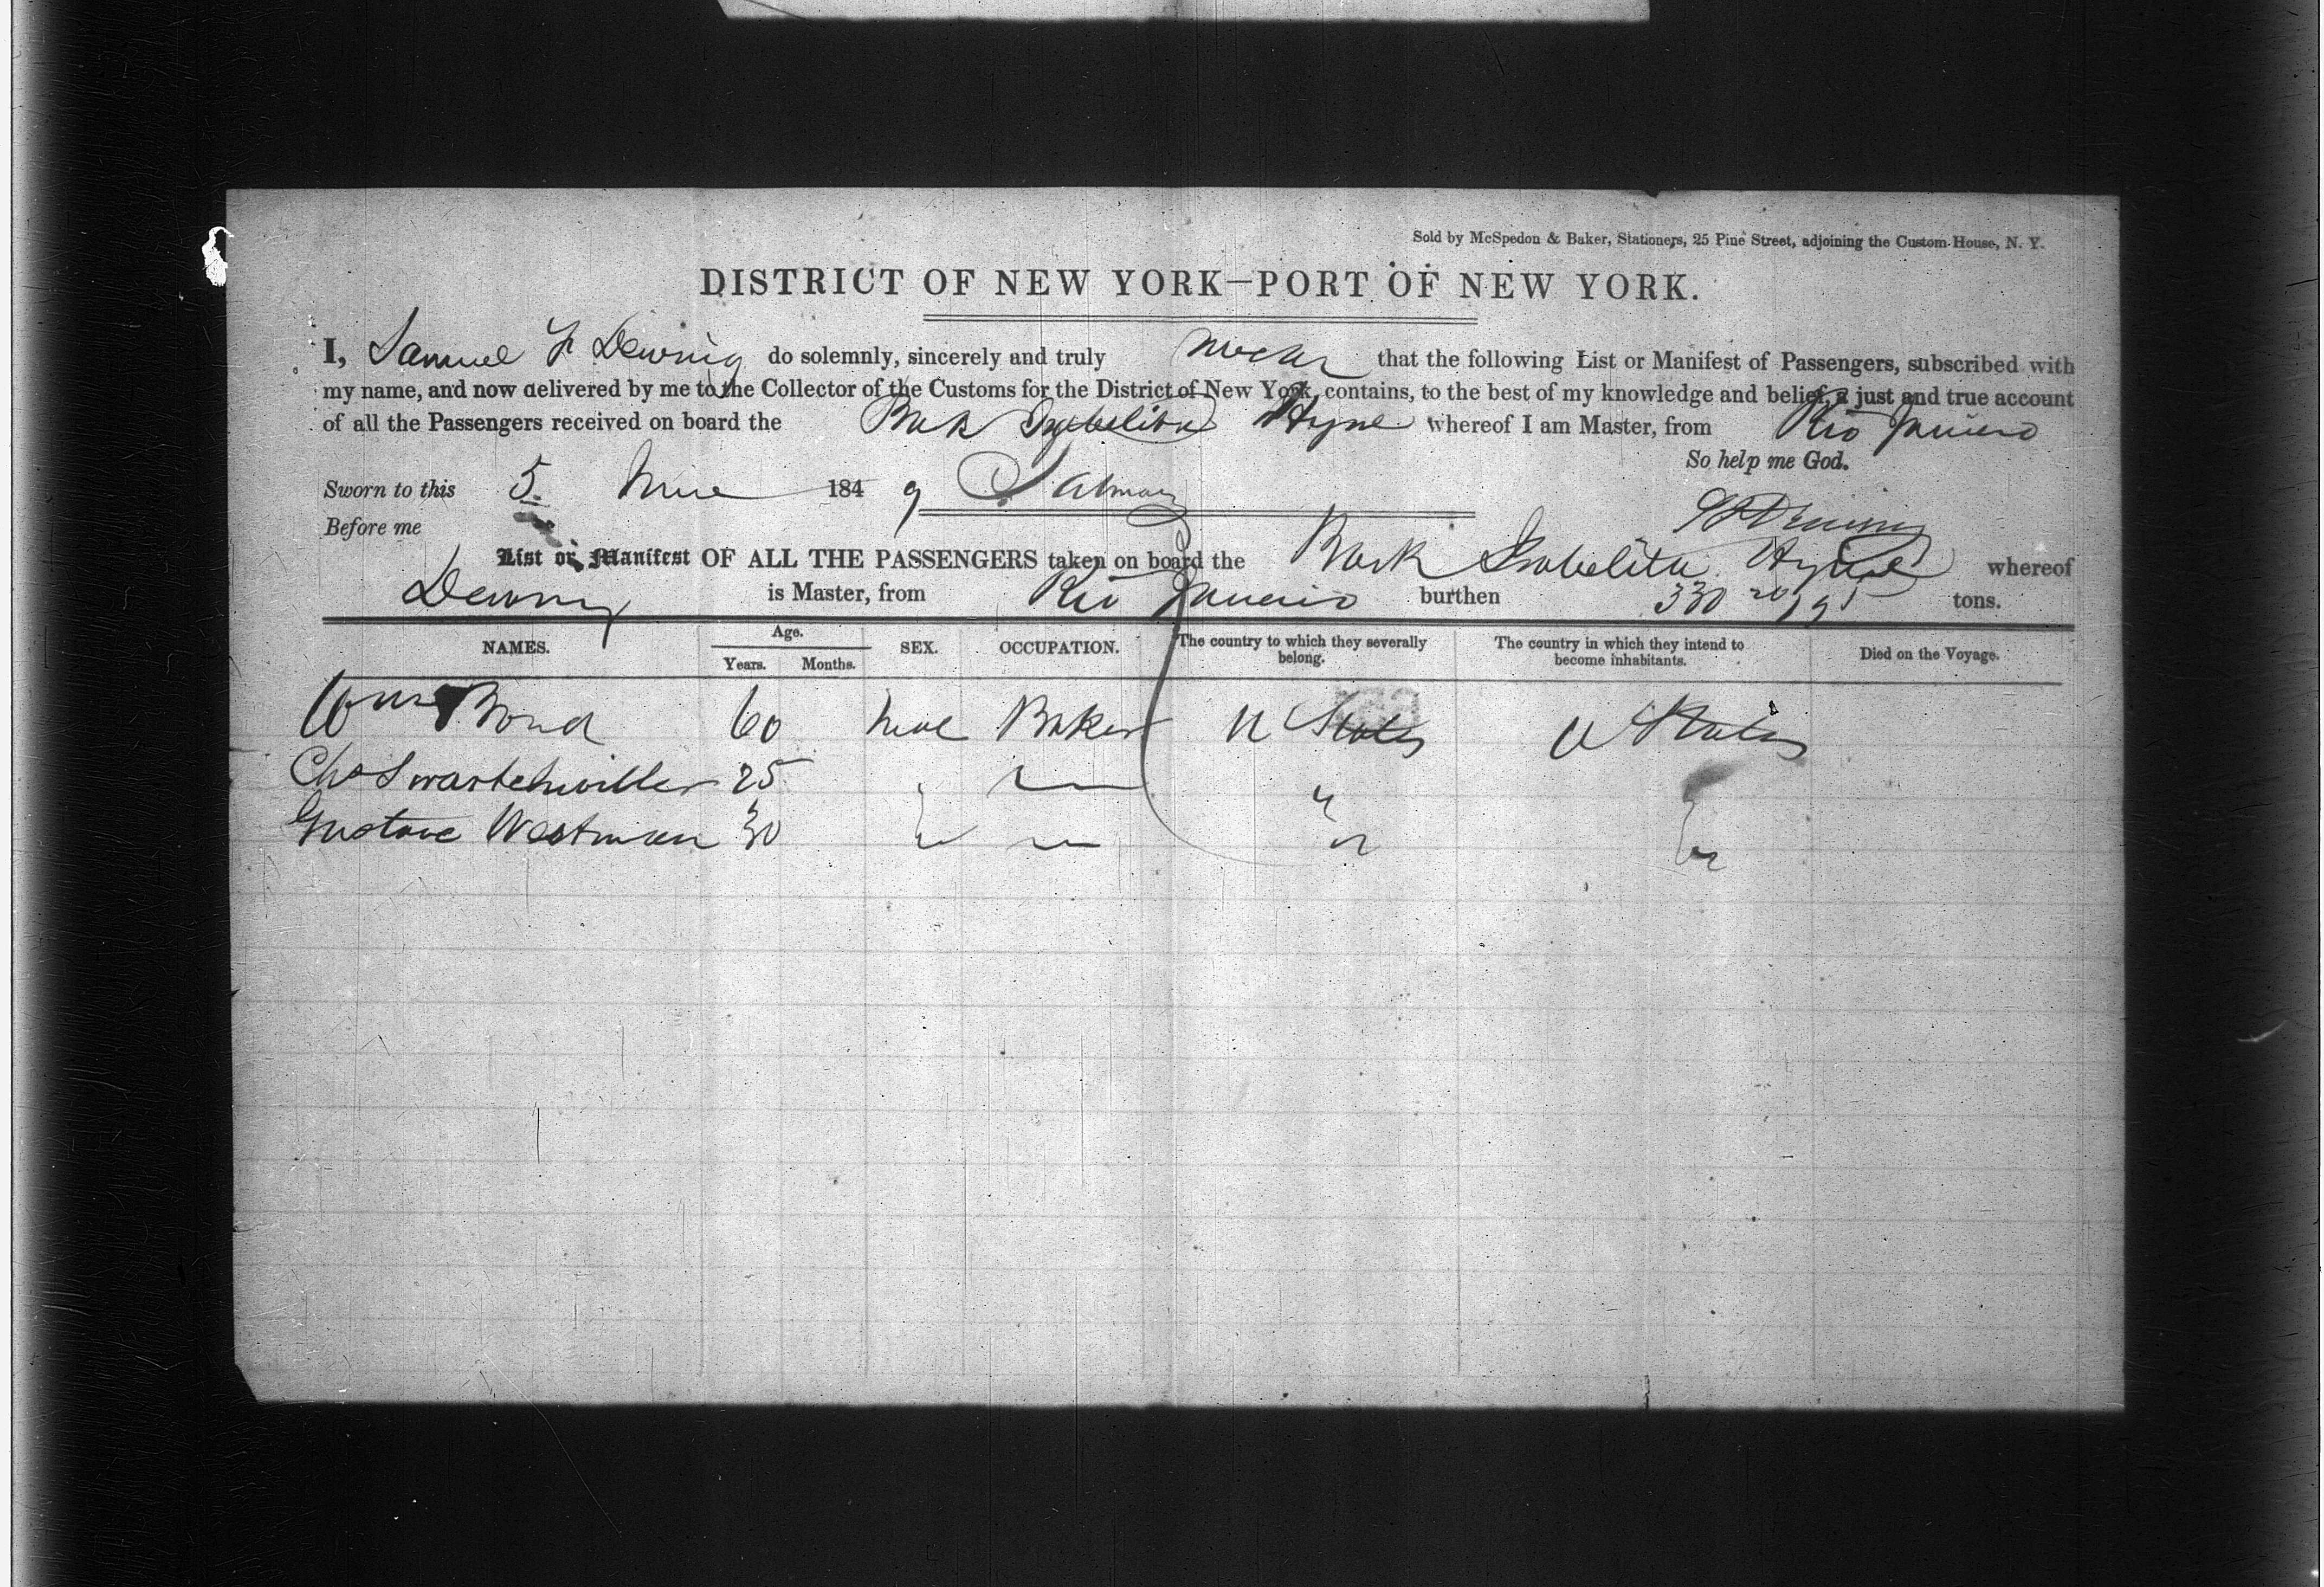 Sold by McSpedon & Baker, Stationers, 25 Pine Street, adjoining the Custom-House, N. Y.
DISTRICT OF NEW YORK—PORT OF NEW YORK.
I, Samuel F Dewing do solemnly, sincerely and truly swear that the following List or Manifest of Passengers, subscribed with
my name, and now delivered by me to the Collector of the Customs for the District of New York, contains, to the best of my knowledge and belief, a just and true account
of all the Passengers received on board the Bark Isabelita Hyne whereof I am Master, from Rio Janeiro
So help me God.
Sworn to this 5 June 1849
Before me
List or Manifest OF ALL THE PASSENGERS taken on board the Bark Isabelita Hyne whereof
Dewing is Master, from Rio Janeiro burthen 330 20/95 tons.
NAMES. Age. Years. Months. SEX. OCCUPATION. The country to which they severally belong. The country in which they intend to become inhabitants. Died on the Voyage.
Wm Bond 60 Male Baker U States U States
Chas 25 "
Gustave Westman 30 "